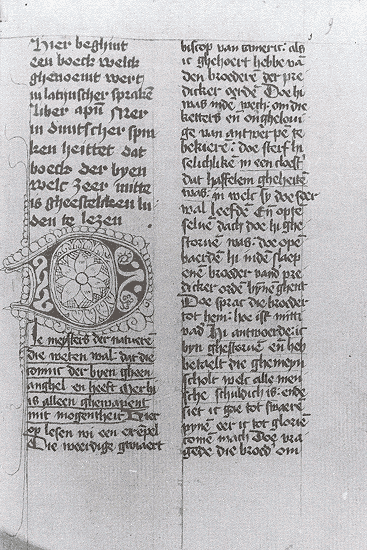 9
Hier beghint
een boeck welck
ghenoemt wert
in latijnscher spraken
liber apum Mer
in duutscher spra
ken heittet dat
boeck der byen
welc zeer nutte
is gheesteliken lu
den te lezen
Die meysters der naturen
die weten wal dat die
connic der byen gheen
anghel en heeft Mer hi
is alleen ghewapent
mit mogentheit Hier
op lesen wi een exempel
Die weerdige gwiaert
biscop van cameric als
ic ghehoert hebbe van
den broederen der pre
dicker oerden Doe hi
was inde wech om die
ketters en onghelovi
ge van antwerpen te
bekieren doe sterf hi
selichliken in een cloest
dat hasselem gheheite
was in welc sy doe seer
wal leefden En opte
selven dach doe hi ghe
storven was doe open
baerden hi inden slaep
enen broeder vand pre
dicker orden byne ghent
Doe sprac die broeder
tot hem hoe ist mitti
vad Hi antwoerde ic
byn ghestorven en heb
betaelt die ghemeyn
scholt welc alle men
sche schuldich is ende
siet ic gae tot swaere
pynen eer ic tot glorien
comen mach Doe vra
gede die broed om